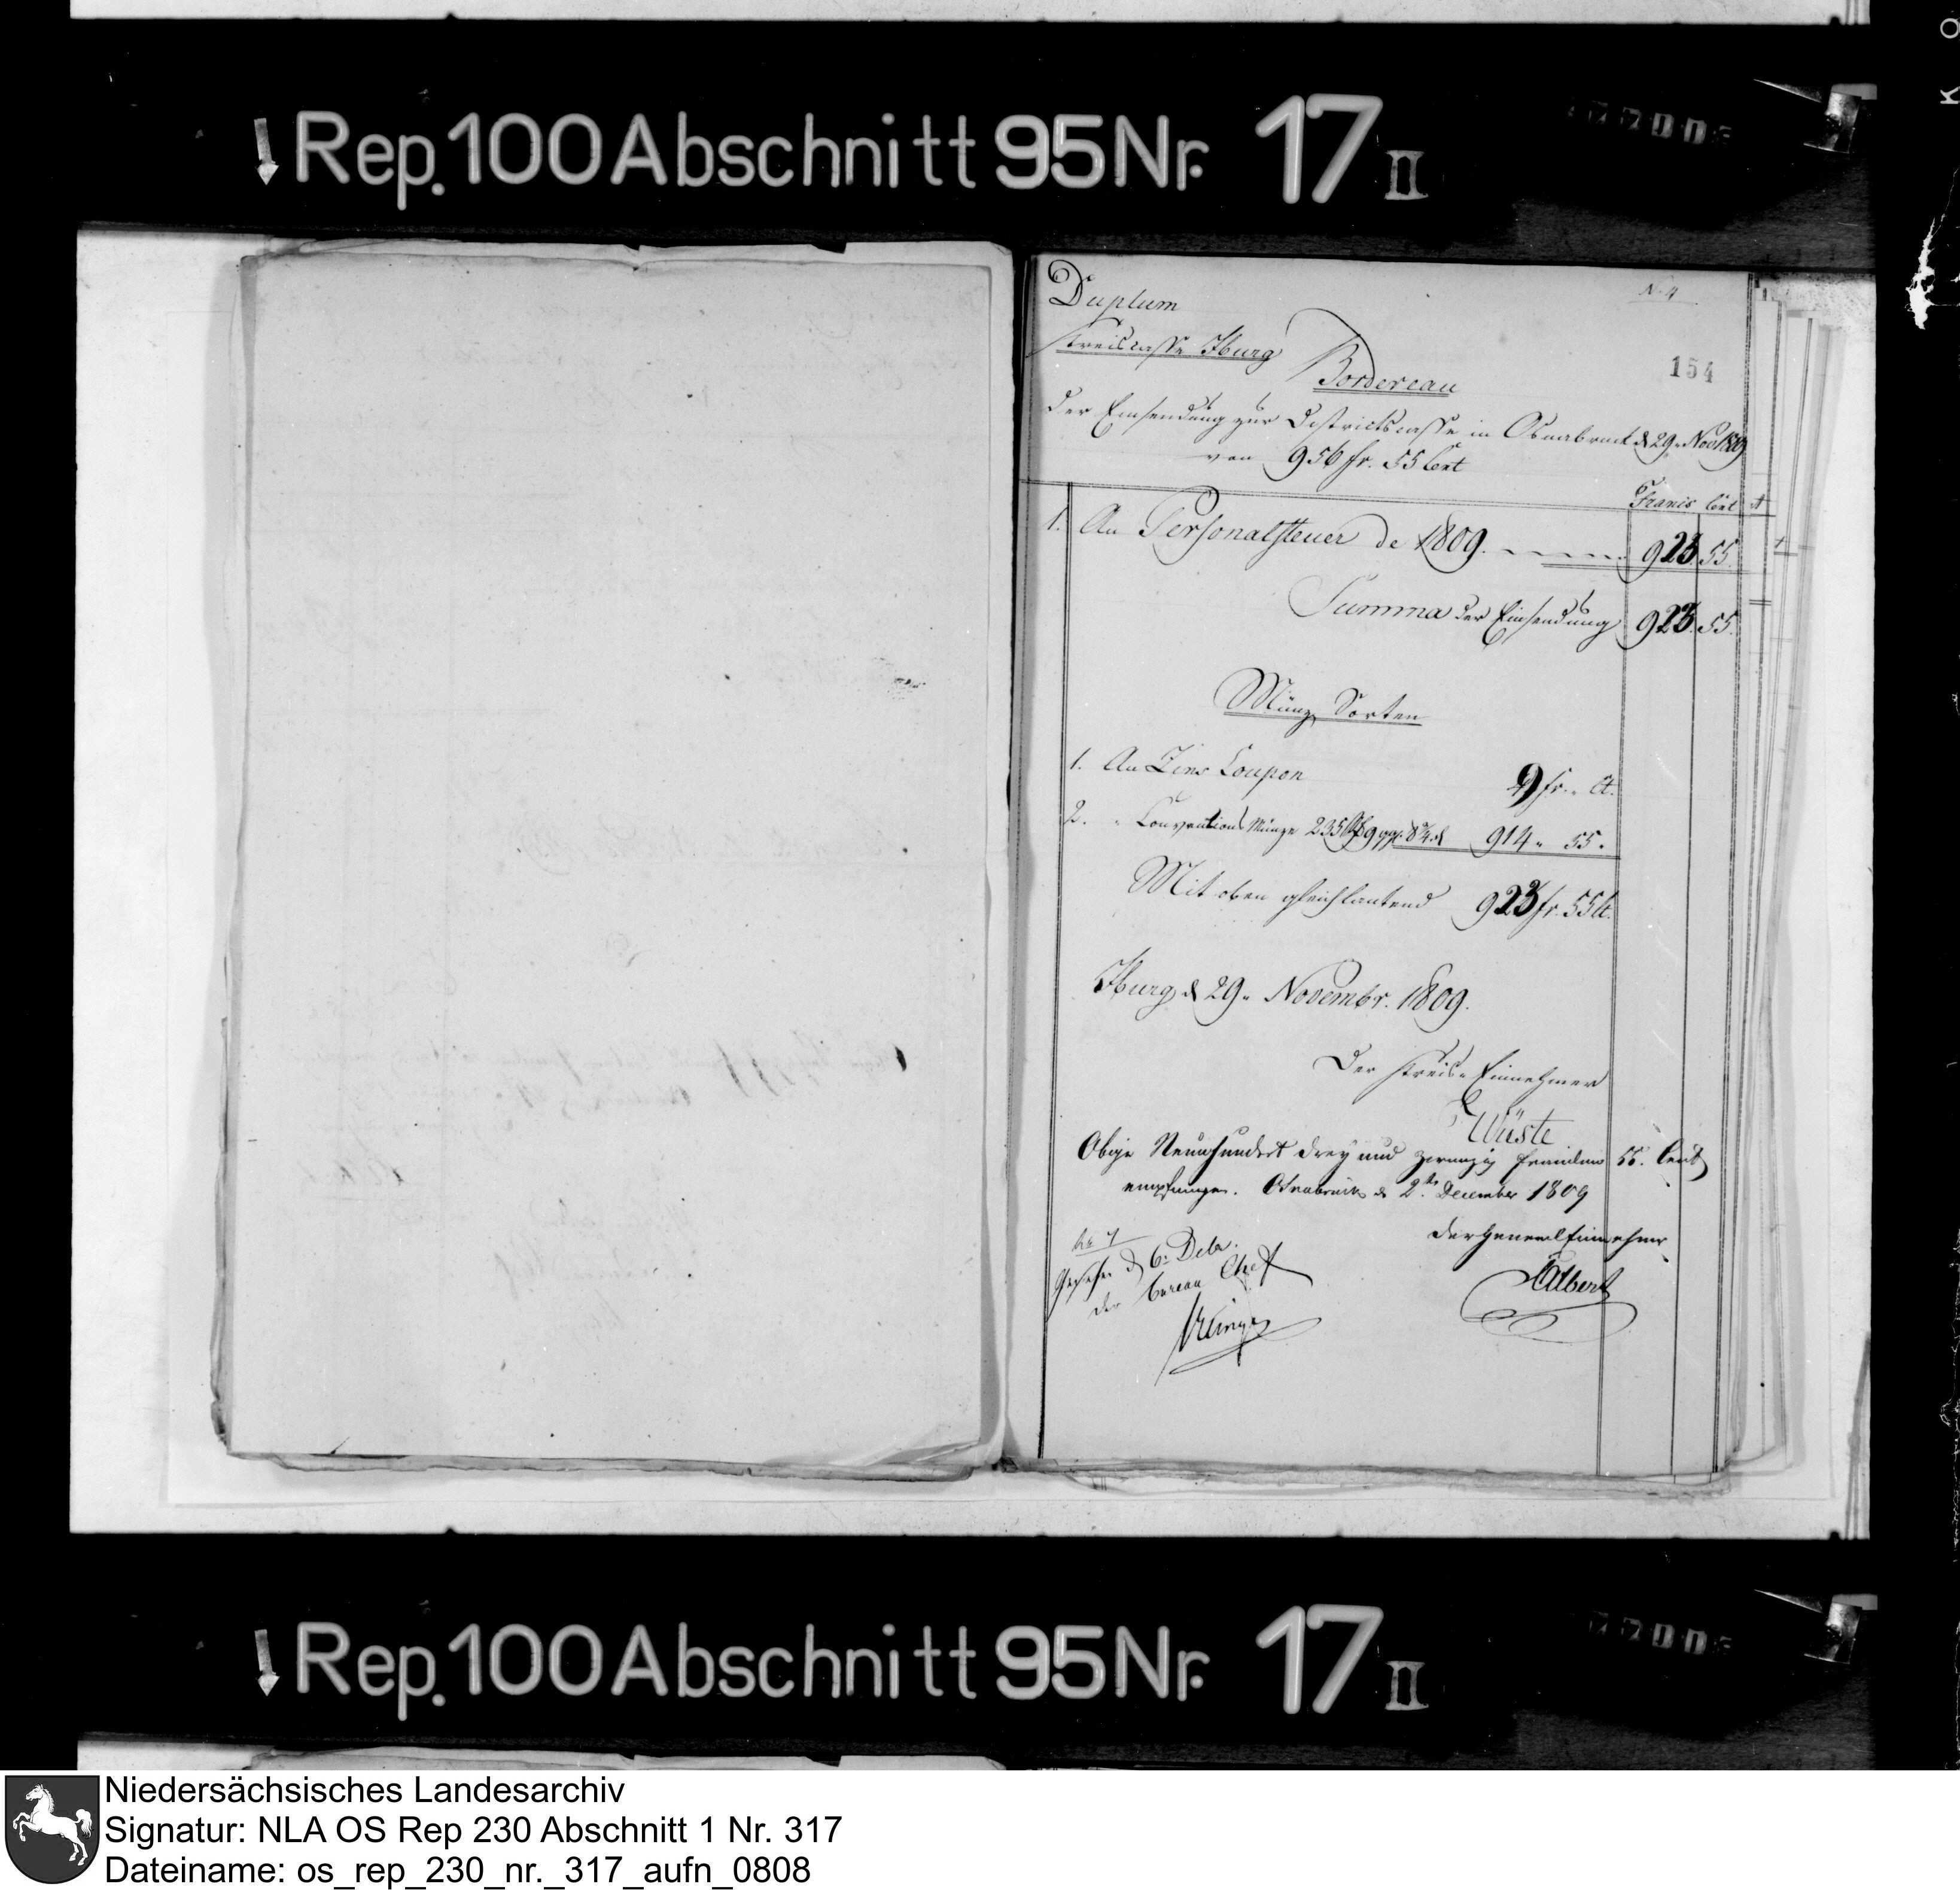 Rep. 100 Abschnitt 95 Nr. 17 II
Duplum
N. 4
Kreiscasse Iburg
154
Bordereau
der Einsendung zur Districtscasse in Osnabrück d 29. Nov 1809
von 956 fr. 55 Cent
Francs Cent
1. An Personalsteuer de 1809. 923. 55.
Summa der Einsendung 923. 55.
Münz Sorten
1. An Zins Coupon 9 fr. " Ct.
2. " Conventions Münze 235 9 ggr. 914 " 55 "
Mit oben gleichlautend 923 fr. 55 Ct.
Iburg d 29. Novembr. 1809.
Der Kreis-Einnehmer
Wüste
Obige Neunhundert drey und zwanzig Franken 55. Cent
empfangen. Osnabrück d 2ten December 1809
Der General Einnehmer
Albert
Gesehen d 6. Debr.
der Bureau Chef
Rep. 100 Abschnitt 95 Nr. 17 II
Niedersächsisches Landesarchiv
Signatur: NLA OS Rep 230 Abschnitt 1 Nr. 317
Dateiname: os_rep_230_nr._317_aufn_0808